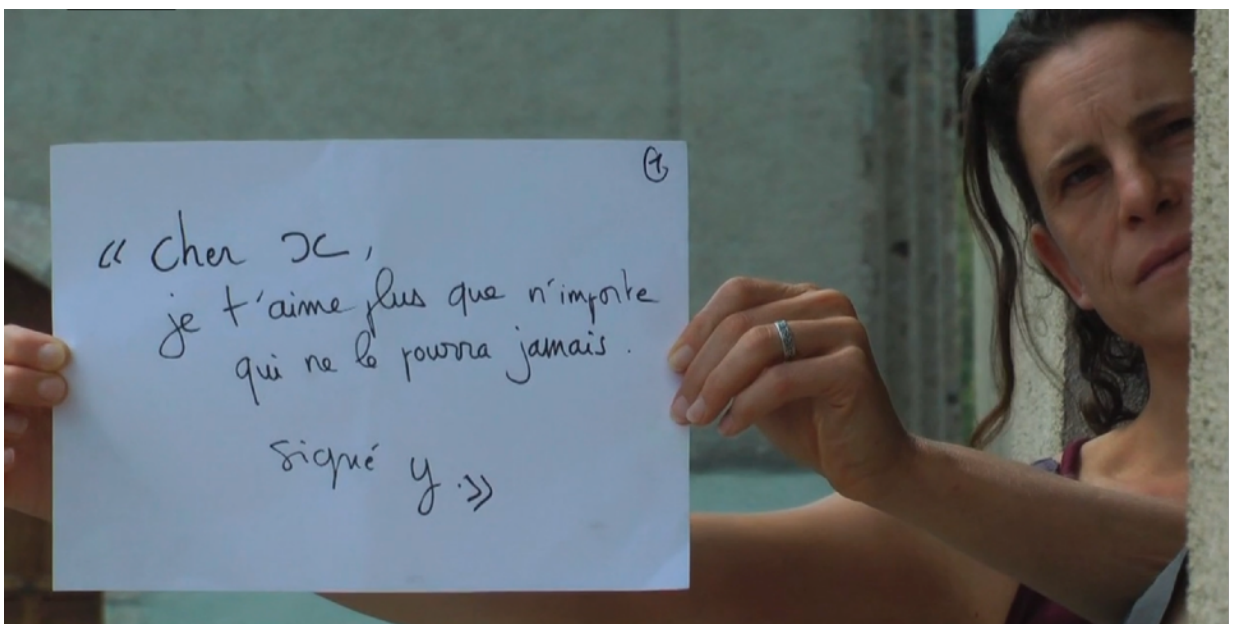 « Cher x,
je t'aime plus que n'importe
qui ne le pourra jamais.
signé y.»